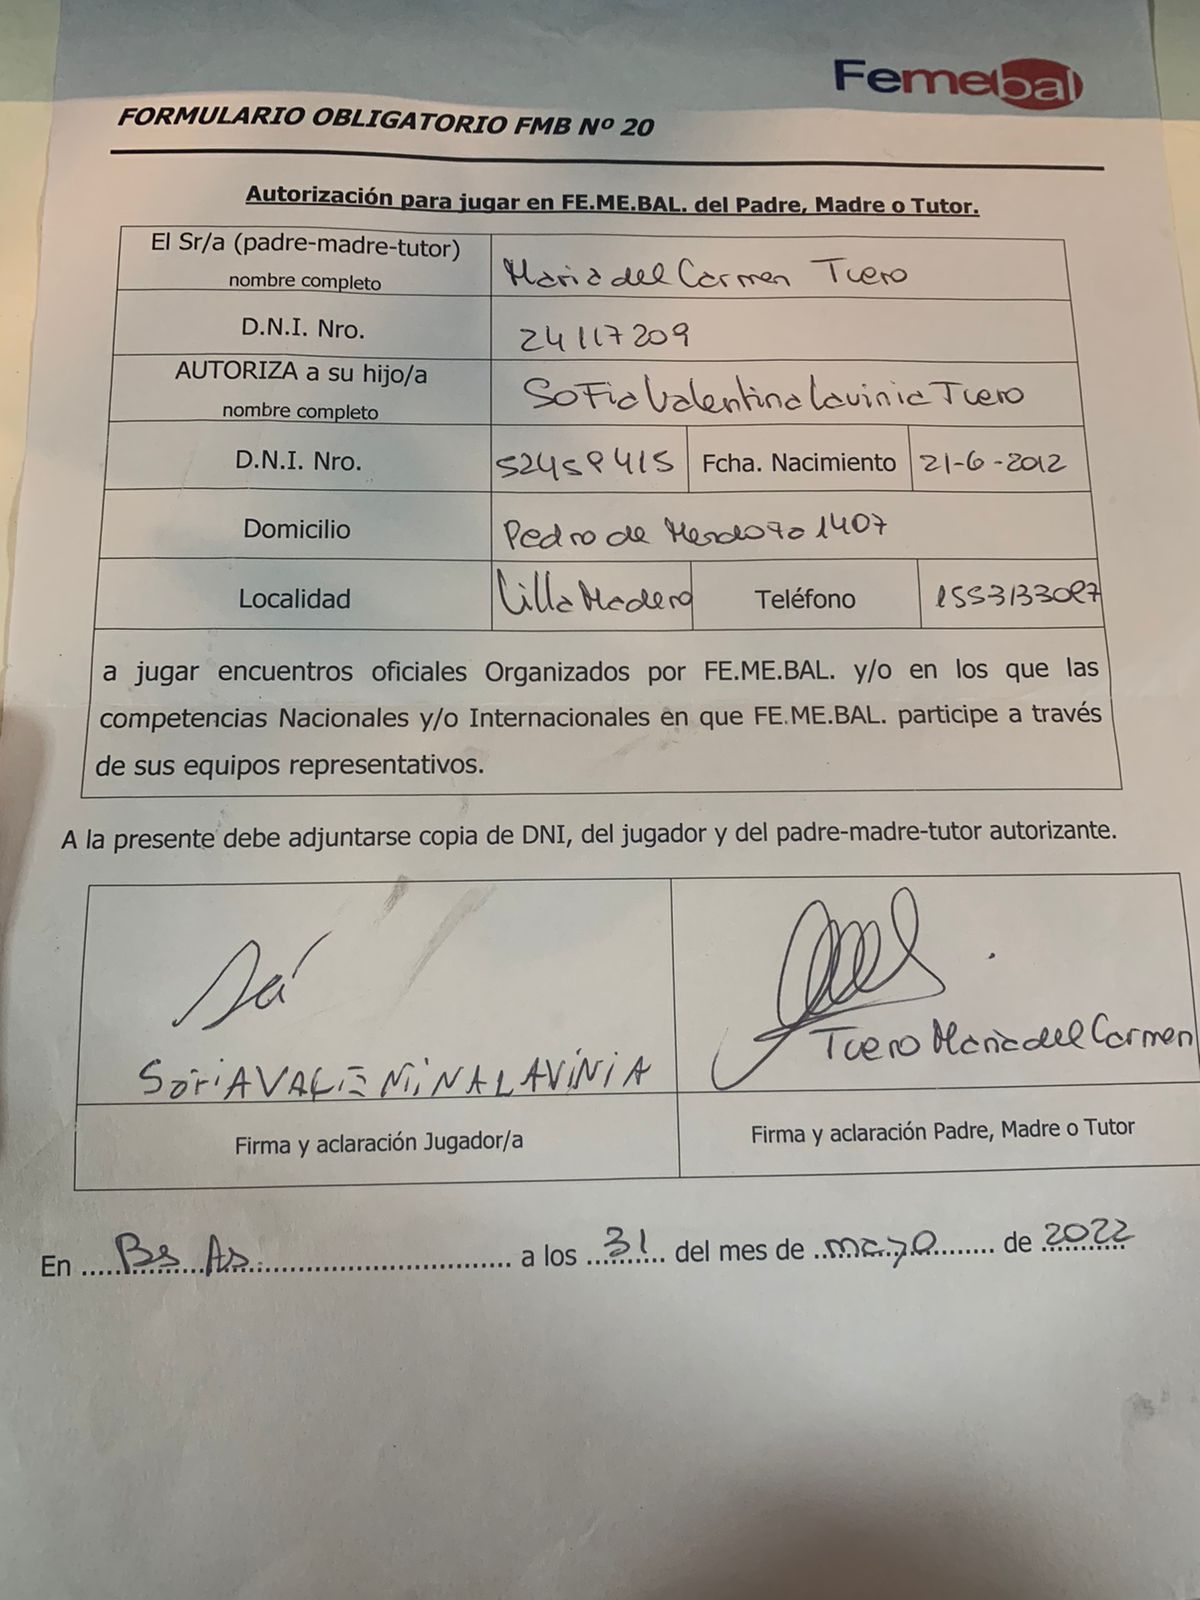 Femebal
FORMULARIO OBLIGATORIO FMB Nº 20
Autorización para jugar en FE.ME.BAL. del Padre, Madre o Tutor.
El Sr/a (padre-madre-tutor)
nombre completo
Maria del Carmen Tuero
D.N.I. Nro.
24117209
AUTORIZA a su hijo/a
nombre completo
Sofia Valentina Lavinia Tuero
D.N.I. Nro.
Fcha. Nacimiento 21-6-2012
Domicilio
Pedro de Mendoza 1407
Localidad
Villa Madero
Teléfono
a jugar encuentros oficiales Organizados por FE.ME.BAL. y/o en los que las
competencias Nacionales y/o Internacionales en que FE.ME.BAL. participe a través
de sus equipos representativos.
A la presente debe adjuntarse copia de DNI, del jugador y del padre-madre-tutor autorizante.
Tuero Maria del Carmen
LAVINIA
Firma y aclaración Jugador/a
Firma y aclaración Padre, Madre o Tutor
En Bs As a los 31 del mes de mayo de 2022